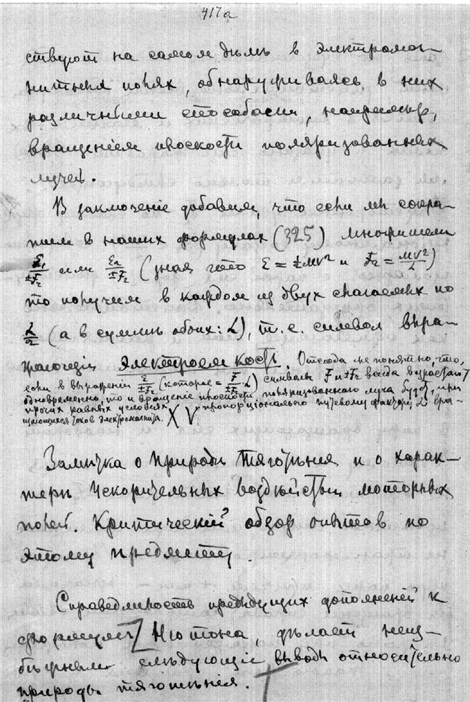 417а
ствуют на самом дѣлѣ в электромаг-
нитных полях, обнаруживаясь в них
различными способами, например,
вращением плоскости поляризованных
лучей.
В заключение добавим, что если мы сокра-
тим в наших формулах (325) множители
или (зная что Σ = ½MV² и
то получим в каждом из двух слагаемых по
(а в сумме обоих: L), т. е. символ выра-
жающий электроемкость. Отсюда же понятно, что,
если в выражении (которое = символы F и ±F₂ всегда возрастают
одновременно, то и вращение плоскости поляризованного луча будет, при
прочих равных условиях пропорционально путевому фактору L
токов электромагнита.
XV.
Замѣтка о природѣ тяготѣния и о харак-
терѣ ускорительных воздѣйствий моторных
полей. Критический обзор опытов по
этому предмету.
Справедливость предыдущих дополнений к
формулѣ Ньютона, дѣлает неиз-
бѣжными слѣдующие выводы относительно
природы тяготѣния.